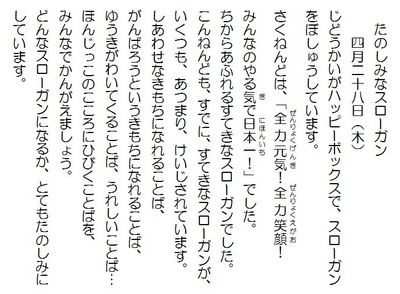 たのしみなスローガン
四月二十八日（木）
じどうかいがハッピーボックスで、スローガン
をぼしゅうしています。
さくねんどは、「全力元気！全力笑顔！
ぜんりょくげんき ぜんりょくえがお
みんなのやる気で日本一！」でした。
き にほんいち
ちからあふれるすてきなスローガンでした。
こんねんども、すでに、すてきなスローガンが、
いくつも、あつまり、けいじされています。
しあわせなきもちになれることば、
がんばろうというきもちになれることば、
ゆうきがわいてくることば、うれしいことば…
ほんじっこのこころにひびくことばを、
みんなでかんがえましょう。
どんなスローガンになるか、とてもたのしみに
しています。